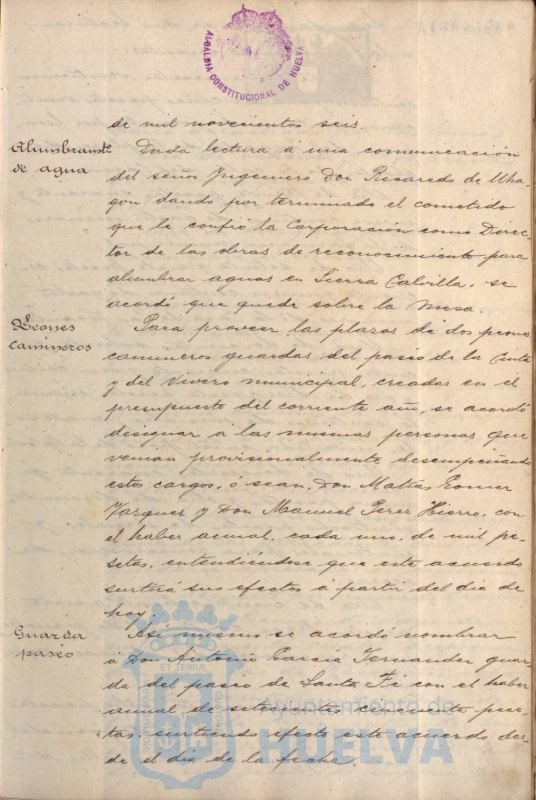 ALCALDIA CONSTITUCIONAL DE HUELVA
de mil novecientos seis.
Alumbramto
de agua
Dada lectura á una comunicación
del señor Ingeniero Don Recaredo de Uha-
gón dando por terminado el cometido
que le confió la Corporación como Direc-
tor de las obras de reconocimiento para
alumbrar aguas en Sierra Calvilla, se
acordó que quede sobre la Mesa.
Peones
camineros
Para proveer las plazas de dos peones
camineros guardas del paseo de la Cinta
y del Vivero municipal, creadas en el
presupuesto del corriente año, se acordó
designar a las mismas personas que
venian provisionalmente desempeñando
estos cargos, ó sean, Don Matías Romer
Vazquez y Don Manuel Perez Hierro, con
el haber anual, cada uno, de mil pe-
setas, entendiéndose que este acuerdo
surtirá sus efectos á partir del dia de
hoy.
Guarda
paseo
Asi mismo se acordó nombrar
á Don Antonio García Fernandez guar-
da del paseo de Santa Fé con el haber
anual de setecientas cincuenta pese-
tas, surtiendo efecto este acuerdo des-
de el dia de la fecha.
Ayuntamiento de
HUELVA